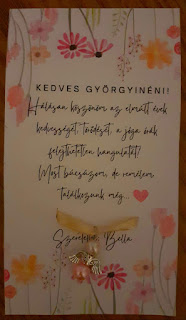 KEDVES GYÖRGYINÉNI!
Hálásan köszönöm az elmúlt évek
kedvességét, törődését, a jóga órák
felejthetetlen hangulatát!
Most búcsúzom, de remélem
találkozunk még...
Szeretettel, Bella